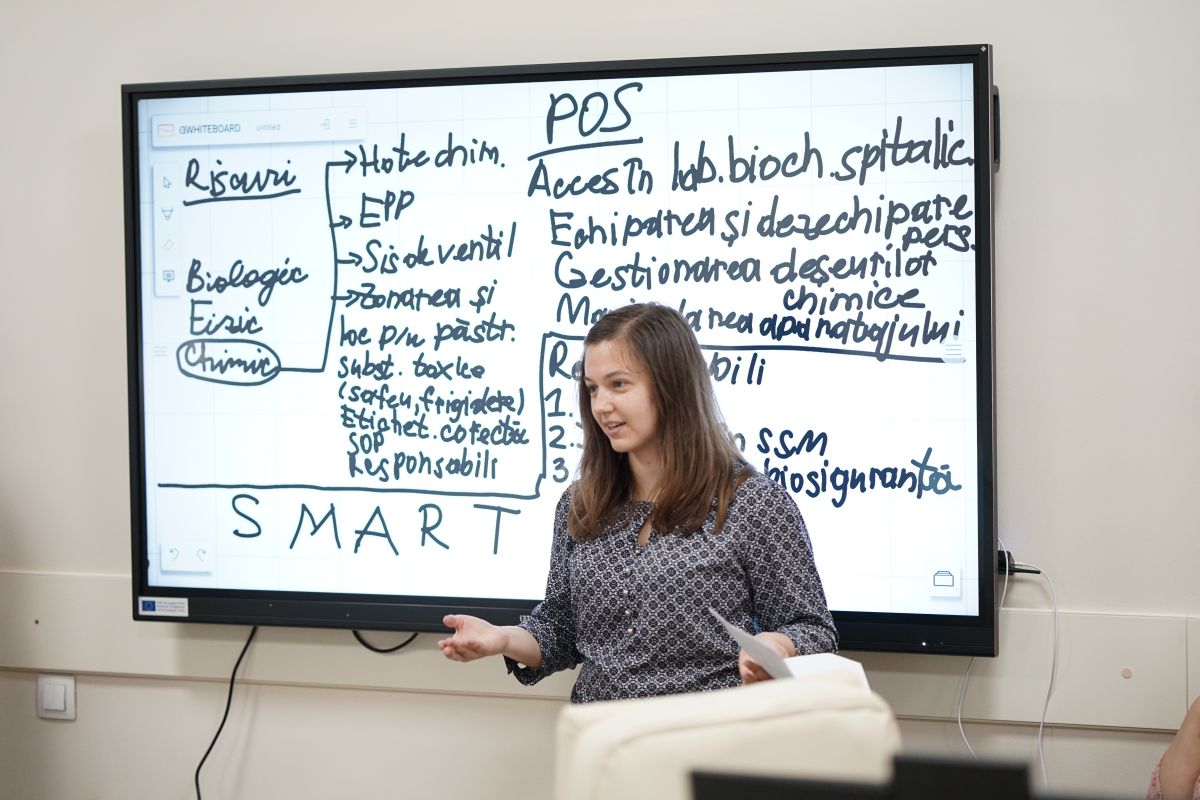 WHITEBOARD
untitled
POS
Riscuri
Biologic
Fizic
Chimic
Hote chim.
EPP
Sis de ventil
Zonarea și
loc p/u păstr.
subst. toxice
(safeu, frigidere)
Etichet. corectă
SOP
Responsabili
Acces în lab. bioch. spitalic.
Echiparea și dezechipare
pers.
Gestionarea deșeurilor
chimice
aparatajului
bili
1.
2.
SSM
3
biosiguranță
SMART